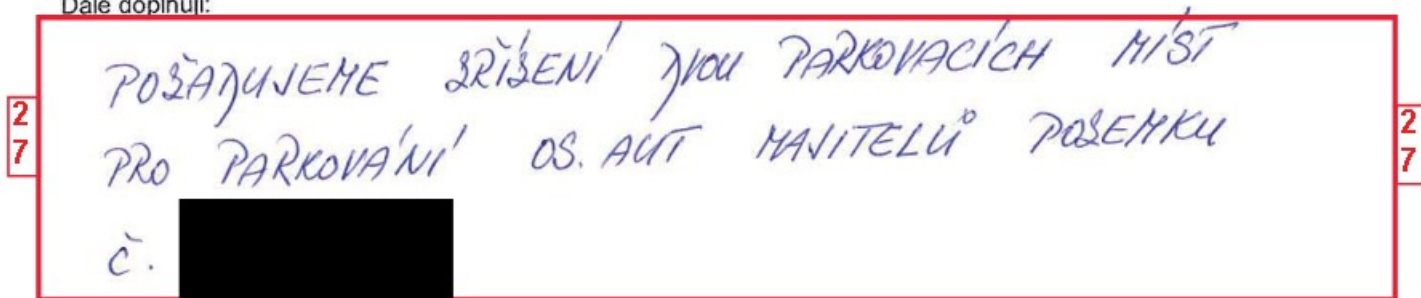 Dále doplňuji:
POŽADUJEME ZŘÍZENÍ DVOU PARKOVACÍCH MÍST
27
PRO PARKOVÁNÍ OS. AUT MAJITELŮ POZEMKU
27
č.